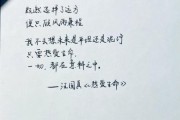 既然选择了远方
便只顾风雨兼程
我不去想未来是平坦还是泥泞
只要热爱生命
一切，都在意料之中。
——汪国真《热爱生命》